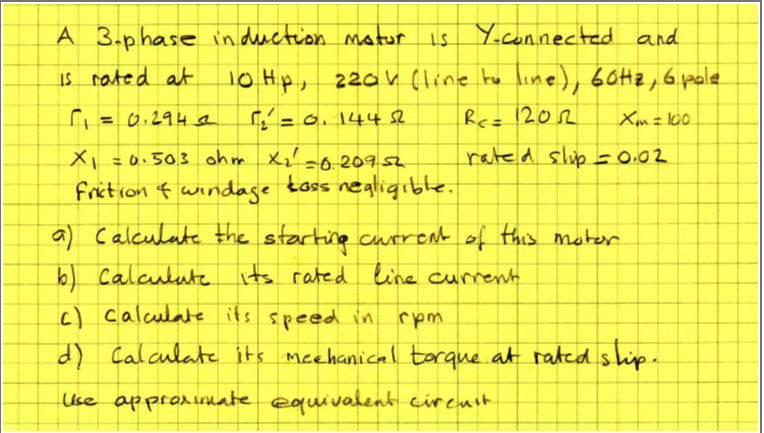 A 3-phase induction motor is Y-connected and
is rated at 10 Hp, 220 V (line to line), 60Hz, 6 pole
r₁ = 0.294 Ω r₂' = 0.144 Ω Rc = 120 Ω Xm = 100
X₁ = 0.503 ohm X₂' = 0.209 Ω rated slip = 0.02
Friction & windage loss negligible.
a) Calculate the starting current of this motor
b) Calculate its rated line current
c) Calculate its speed in rpm
d) Calculate its mechanical torque at rated slip.
Use approximate equivalent circuit